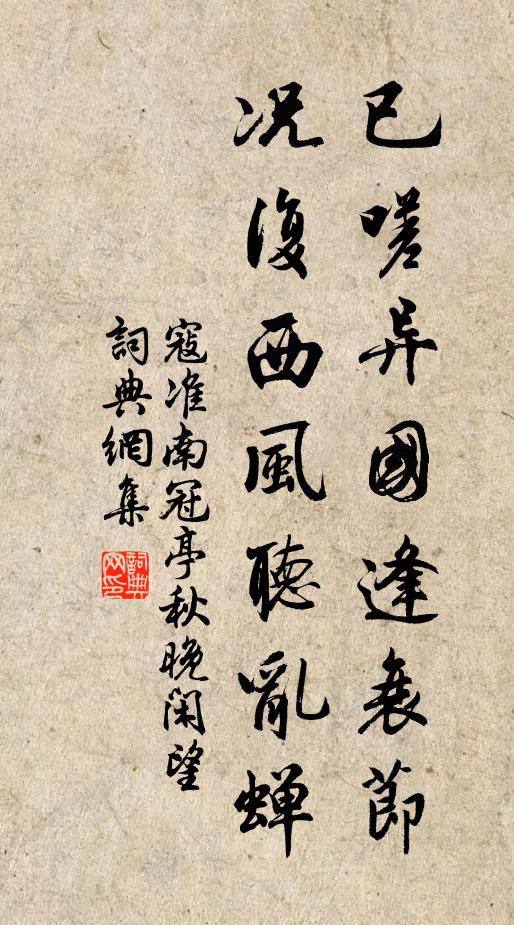 已嗟异國逢衰節
况復西風聽亂蝉
寇准南冠亭秋晚闲望
詞典網集
詞典网印